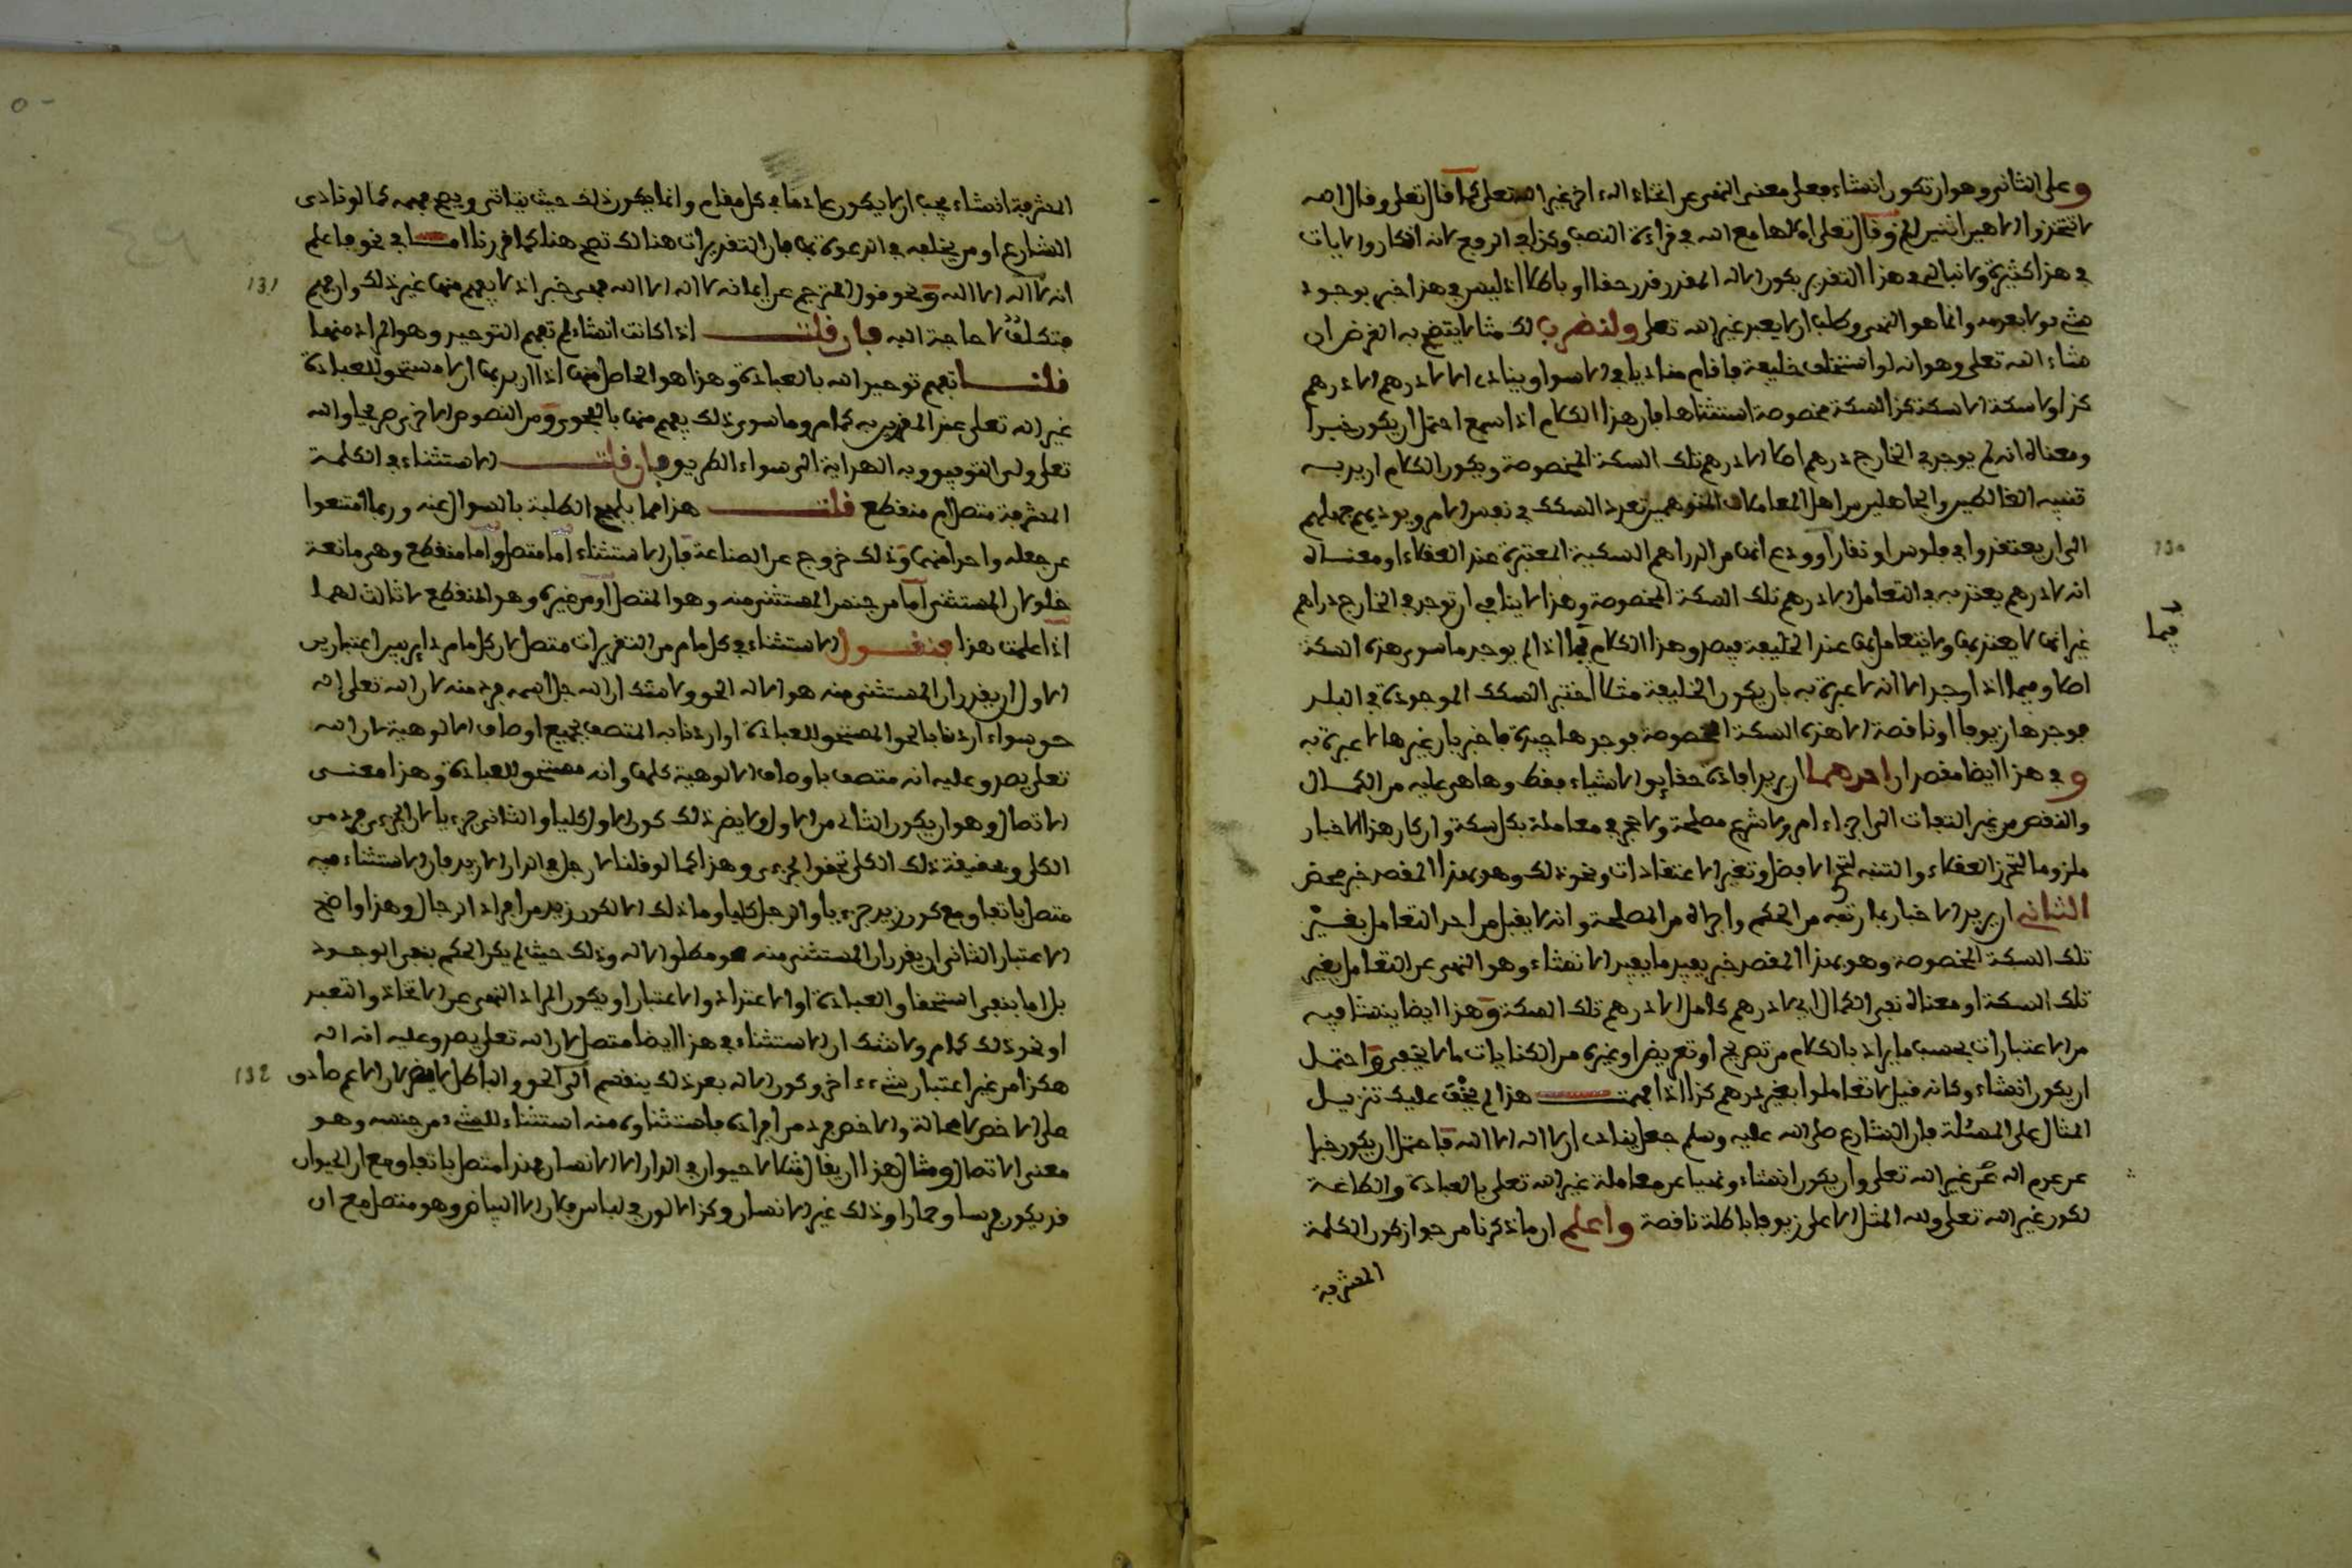 وعلى الثاني وهو ان تكون انشاء فعلى معنى النهي عن اتخاذ اله اخر غير الله تعلى كما قال تعلى وقال الله
لا تتخذوا الاهين اثنين الخ وقال تعلى اءلاها مع الله في قراءة النصب وكذا في الرفع لانه انكار والايات
في هذا كثيرة ولا نبالي في هذا التقرير بكون الاله المقرر قدر حقا او باطلا اذ ليس في هذا خبر بوجود
شيء ولا بعدمه وانما هو النهي وطلب ان لا يعبد غير الله تعلى ولنضرب لك مثالا يتضح به الغرض ان
شاء الله تعلى وهو انه لو استخلف خليفة فاقام مناديا في الاسواق ينادي الا لا درهم الا درهم
كذا ولا سكة الا سكة كذا لسكة مخصوصة استثناها فان هذا الكلام اذا سمع احتمل ان يكون خبرا
ومعناه انه لم يوجد في الخارج درهم اصلا الا درهم تلك السكة المخصوصة ويكون الكلام اريد به
تنبيه الغالطين والجاهلين من اهل المعاملات المتوهمين تعدد السكك في نفس الامر ويوديهم جهلهم
الى ان يعتقدوا في فلوس او نقار او ودع انها من الدراهم السكية المعتبرة عند العقلاء او معناه
انه لا درهم يعتد به في التعامل الا درهم تلك السكة المخصوصة وهذا لا ينافي ان توجد في الخارج دراهم
غير انها لا يعتد بها ولا يتعامل بها عند الخليفة فيصدق هذا الكلام فيما اذا لم يوجد ما سوى هذه السكة
اصلا وفيما اذا وجد الا انه لا عبرة به بان يكون الخليفة مثلا اختبر السكك الموجودة في البلد
فوجدها زيوفا او ناقصة الا هذه السكة المخصوصة فوجدها جيدة فاخبر بان غيرها لا عبرة به
وفي هذا ايضا مقصدان احدهما ان يريد افادة حقايق الاشياء فقط وما هي عليه من الكمال
والنقص من غير التفات الى اجراء امر ولا شرع مصلحة ولا حجر في معاملة بكل سكة وان كان هذا الاخبار
ملزوما لتحرز العقلاء والتنبه لتحرا الافضل وتغير الاعتقادات ونحو ذلك وهو بهذا المقصد خبر محض
الثاني ان يريد الاخبار بما رتبه من الحكم واجراه من المصلحة وانه لا يقبل من احد التعامل بغير
تلك السكة المخصوصة وهو بهذا المقصد خبر يفيد ما يفيد الانشاء وهو النهي عن التعامل بغير
تلك السكة او معناه نفي الكمال اي لا درهم كامل الا درهم تلك السكة وهذا ايضا ينشا فيه
من الاعتبارات بحسب ما يراد بالكلام من تصريح او تعريض او غيره من الكنايات ما لا يخفى واحتمل
ان يكون انشاء وكانه قيل لا تعاملوا بغير درهم كذا اذا فهمت هذا لم يخف عليك تنزيل
المثال على المسئلة فان الشارع صلى الله عليه وسلم جعل ينادي ان لا اله الا الله فاحتمل ان يكون خبرا
عن عدم اله غير الله تعلى وان يكون انشاء ونهيا عن معاملة غير الله تعلى بالعبادة والطاعة
لكون غير الله تعلى ولله المثل الاعلى زيوفا باطلة ناقصة واعلم ان ما ذكرنا من جواز كون الكلمة
المشرفة
فيما
130
المشرفة انشاء يجب ان لا يكون عاما في كل مقام وانما يكون ذلك حيث يتاتى ويصح فهمه كما لو نادى
الشارع او من يخلفه في الدعوة بها فان التقريرات هنالك تصح هنا كما قررنا امـا في نحو فاعلم
انه لا اله الا الله ونحو قول المترجم عن ايمانه لا اله الا الله فهي خبر اذ لا يفهم منها غير ذلك وان فهم
فتكلف لا حاجة اليه فان قلت اذا كانت انشاء لم تفهم التوحيد وهو المراد منها
قلت تفهم توحيد الله بالعبادة وهذا هو الحاصل منها اذا اريد بها ان لا مستحق للعبادة
غير الله تعلى عند المقرين به كما مر وما سوى ذلك يفهم منها بالفحوى ومن النصوص الاخرى صريحا والله
تعلى ولي التوفيق وبه الهداية الى سواء الطريق فان قلت الاستثناء في الكلمة
المشرفة متصل ام منقطع قلت هذا مما يلهج الطلبة بالسوال عنه وربما امتنعوا
عن جعله واحدا منها وذلك خروج عن الصناعة فان الاستثناء اما متصل واما منقطع وهي مانعة
خلو لان المستثنى اما من جنس المستثنى منه وهو المتصل او من غيره وهو المنقطع لا ثالث لهما
اذا علمت هذا فنقول الاستثناء في كل ما مر من التقريرات متصل لان كل ما مر داير بين اعتبارين
الاول ان يقرر ان المستثنى منه هو الاله الحق ولا شك ان الله جل اسمه فرد منه لان الله تعلى اله
حق سواء اردنا بالحق المستحق للعبادة او اردنا به المتصف بجميع اوصاف الالوهية لان الله
تعلى يصدق عليه انه متصف باوصاف الالوهية كلها وانه مستحق للعبادة وهذا معنى
الاتصال وهو ان يكون الثاني من الاول ولا يضر ذلك كون الاول كليا والثاني جزءيا لان الجزءي فرد من
الكلي وبحقيقة ذلك الكلي تحقق الجزءي وهذا كما لو قلنا لا رجل في الدار الا زيد فان الاستثناء فيه
متصل باتفاق مع كون زيد جزءيا والرجل كليا وما ذلك الا لكون زيد من افراد الرجال وهذا واضح
الاعتبار الثاني ان يقرر ان المستثنى منه هو مطلق الاله وذلك حيث لم يكن الحكم بنفي الوجود
بل اما بنفي استحقاق العبادة او الاعتداد والاعتبار او يكون المراد النهي عن الاتخاذ والتعبد
او نحو ذلك كما مر ولا شك ان الاستثناء في هذا ايضا متصل لان الله تعلى يصدق عليه انه اله
هكذا من غير اعتبار شيء اخر وكون الاله بعد ذلك ينقسم الى الحق والباطل لا يضر لان الاعم صادق
على الاخص لا محالة والاخص فرد من افراده فاستثناؤه منه استثناء للشيء من جنسه وهو
معنى الاتصال ومثال هذا ان يقال مثلا لا حيوان في الدار الا الانسان فهذا متصل باتفاق مع ان الحيوان
قد يكون فرسا وحمارا وذلك غير الانسان وكذا لا لون في لباس فلان الا البياض وهو متصل مع ان
131
132